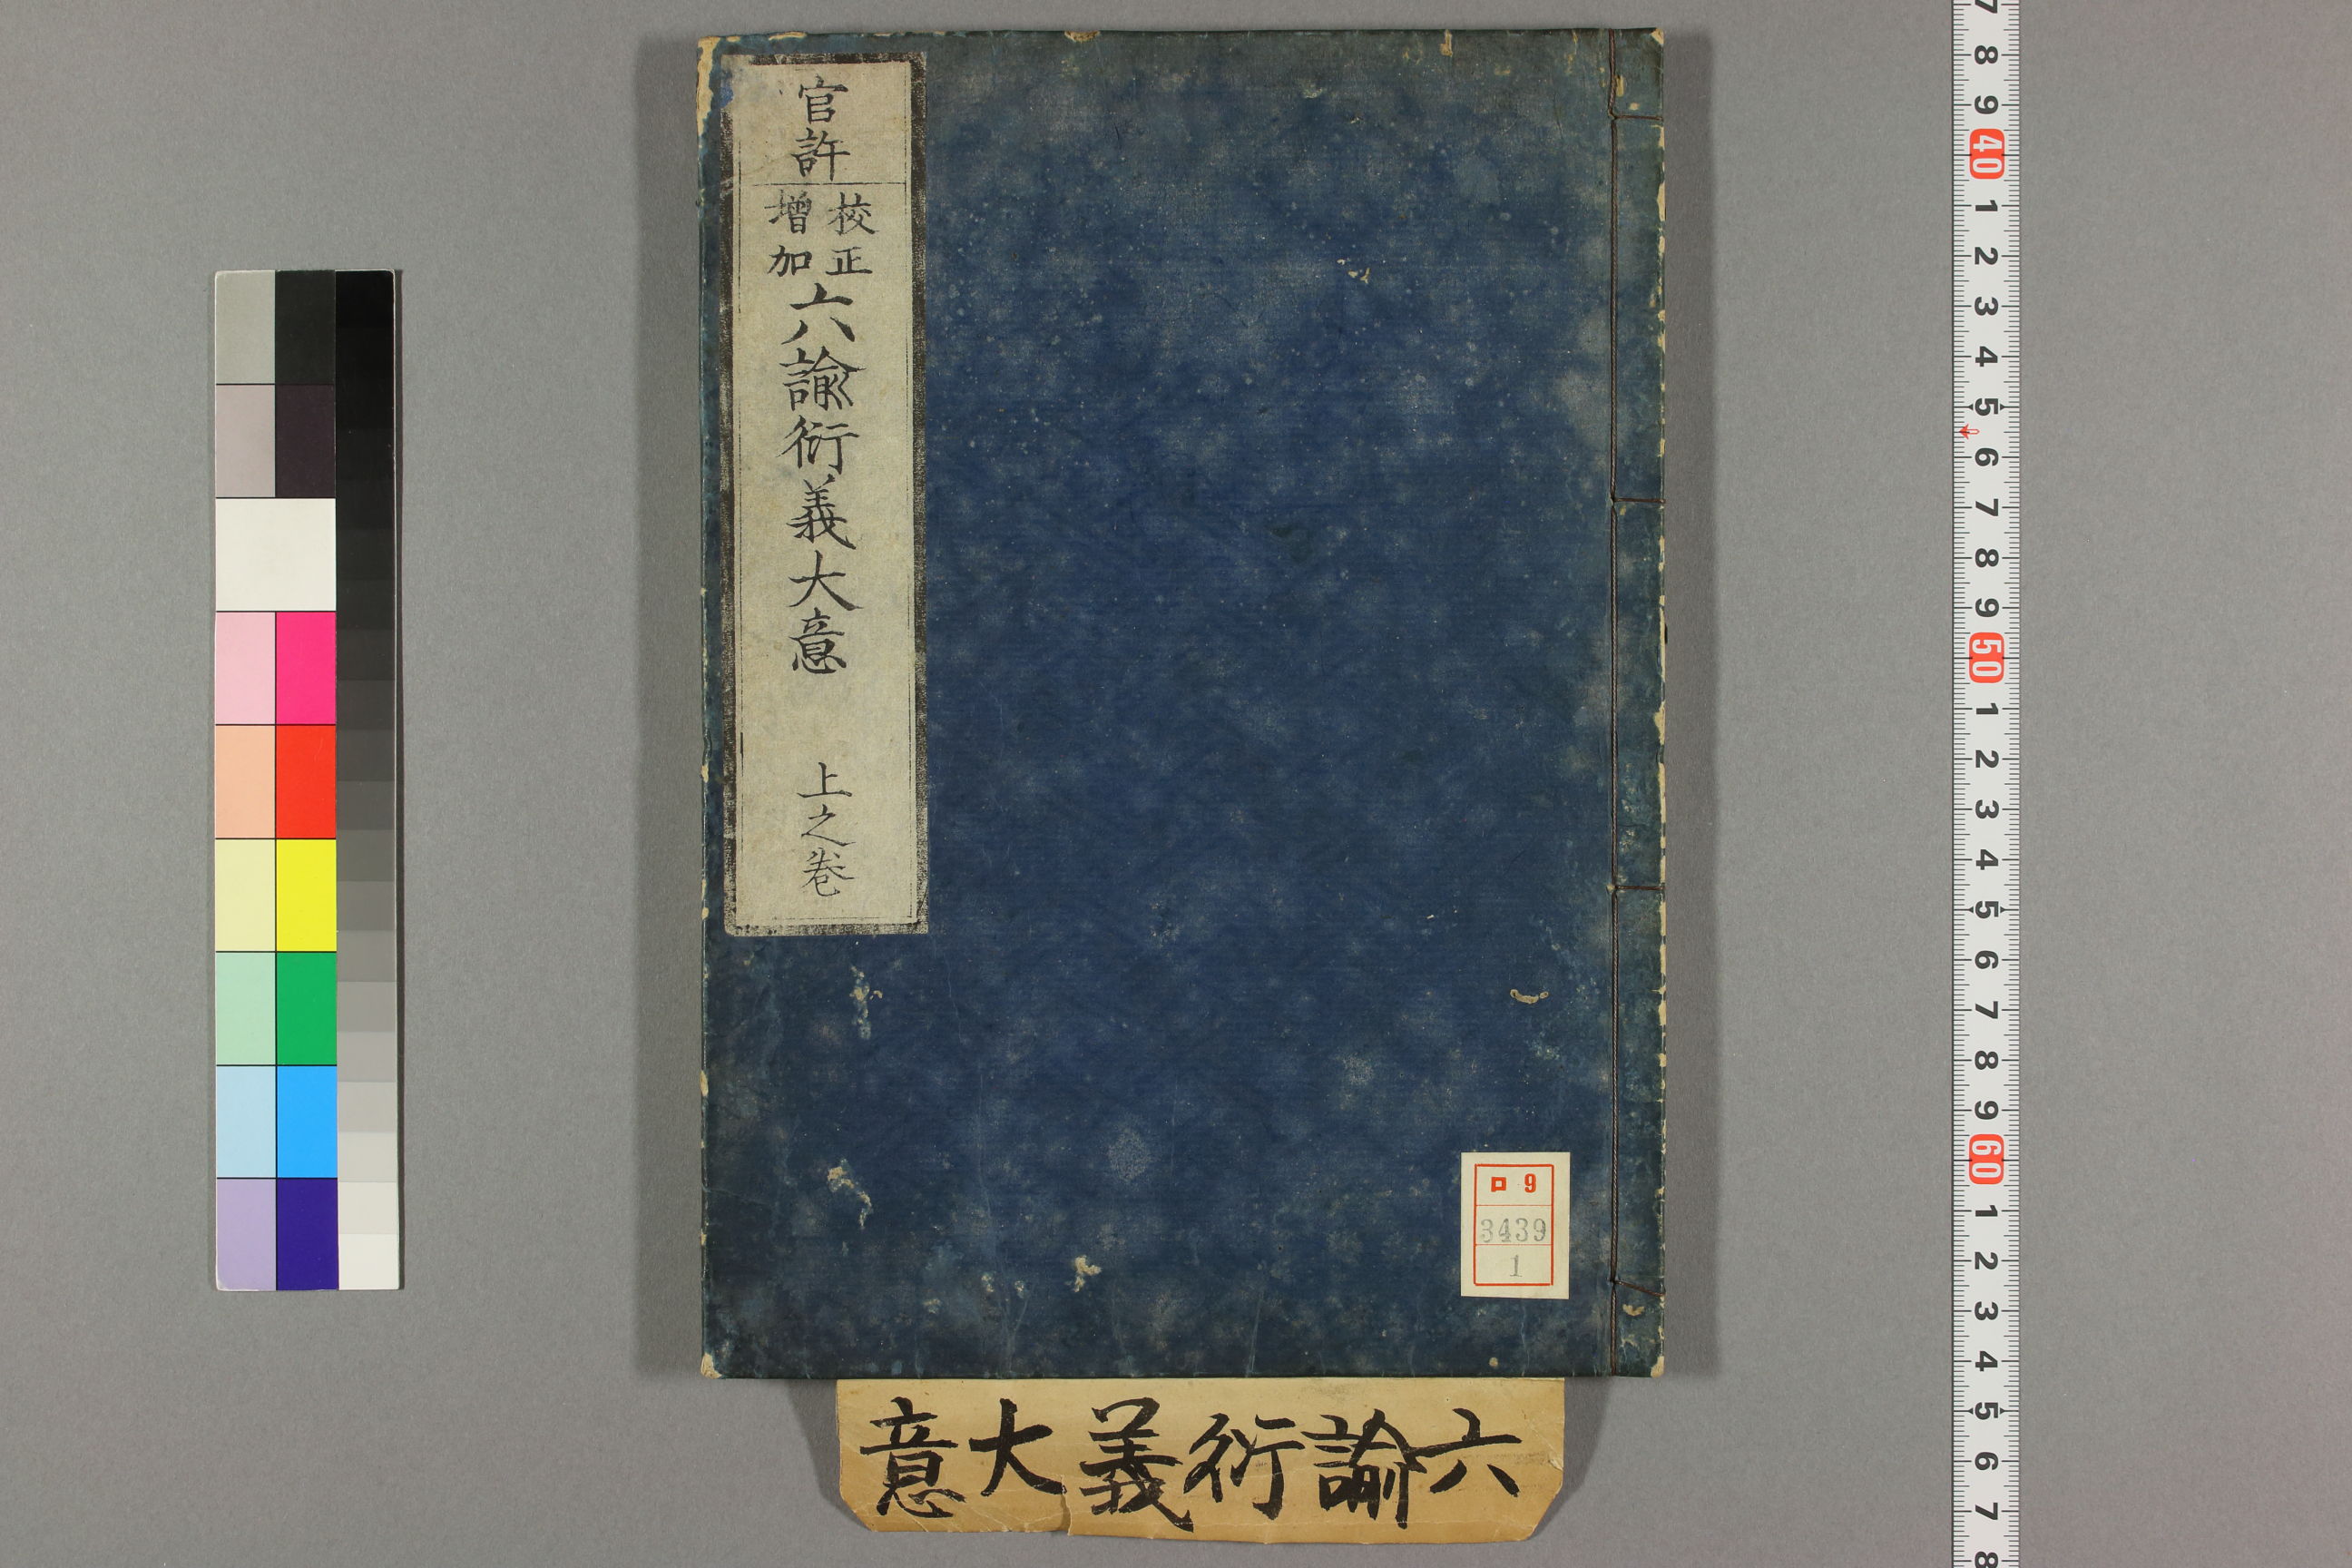 官許
校正
增加
六諭衍義大意
上之巻
ロ 9
3439
1
六諭衍義大意
7
8
9
40
1
2
3
4
5
6
7
8
9
50
1
2
3
4
5
6
7
8
9
60
1
2
3
4
5
6
7
8